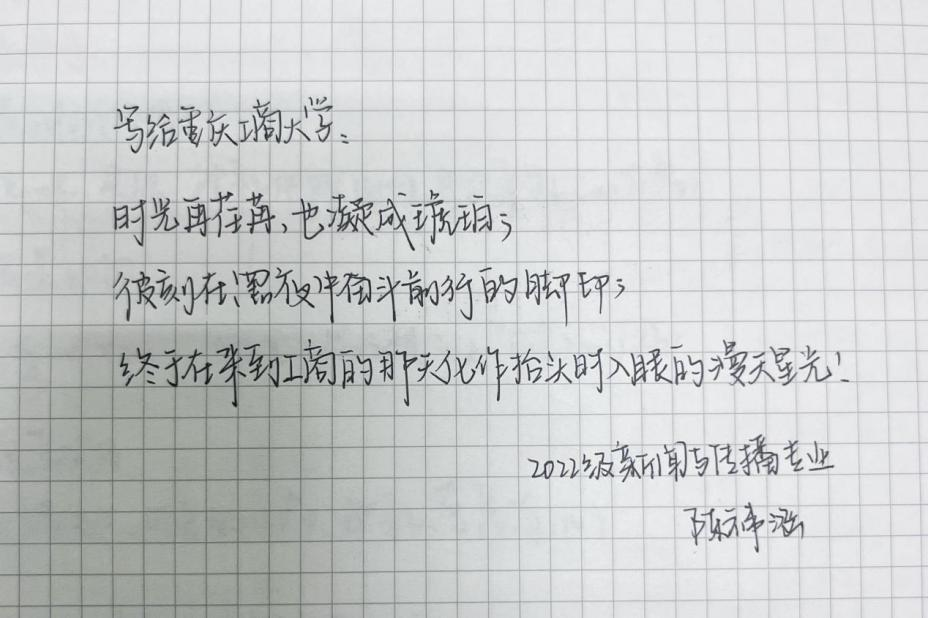 写给重庆工商大学：
时光再荏苒、也凝成琥珀；
彼刻在黑夜中闷头前行的脚印；
终于在来到工商的那天化作抬头时入眼的漫天星光！
2022级新闻与传播专业
陈祎涵